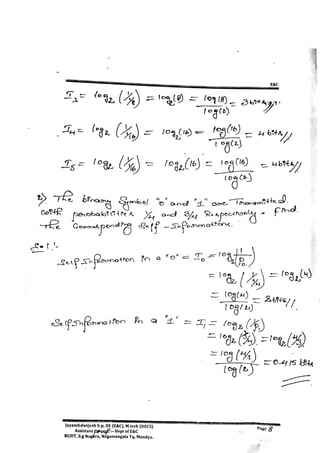 E&C
I₃ = log₂ (1/⅛) = log₂(8) = log(8)/log(2) = 3 bits//
I₄ = log₂ (1/1/16) = log₂(16) = log(16)/log(2) = 4 bits//
I₅ = log₂ (1/1/16) = log₂(16) = log(16)/log(2) = 4 bits//
2) The binary Symbol "0" and "1" are Transmitted
with probabilities ¼ and 3/4 Respectively. Find
the Corresponding Self-Informations.
Self Information in a "0" = I₀ = log₂(1/p₀)
= log₂ (1/¼) = log₂(4)
= log(4)/log(2) = 2 bits//
Self Information in a "1" = I₁ = log₂ (1/p₁)
= log₂ (1/3/4) = log₂(4/3)
= log(4/3)/log(2) = 0.415 bits
Jayanthdwijesh h.p, BE (E&C), M.tech (DECS)
Assistant – Dept of E&C
BGSIT, b.g Nagara, Nagamangala Tq, Mandya.
Page 8